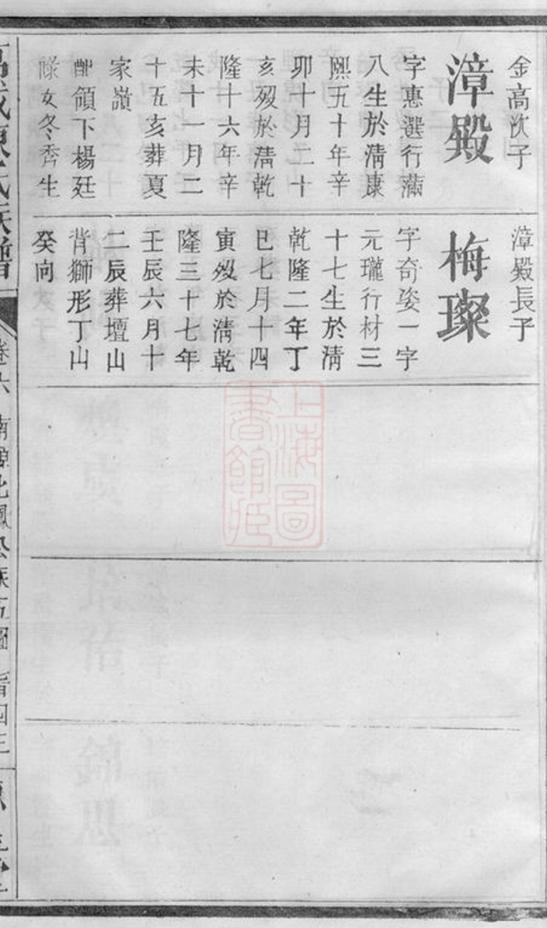 金高次子
漳殿
字惠選行滿
八生於淸康
熙五十年辛
卯十月二十
亥歿於淸乾
隆十六年辛
未十一月二
十五亥葬夏
家嶺
配領下楊廷
女冬秀生
漳殿長子
梅璨
字奇姿一字
元瓏行材三
十七生於淸
乾隆二年丁
巳七月十四
寅歿於淸乾
隆三十七年
壬辰六月十
二辰葬壇山
背獅形丁山
癸向
上海圖
書館藏
卷六